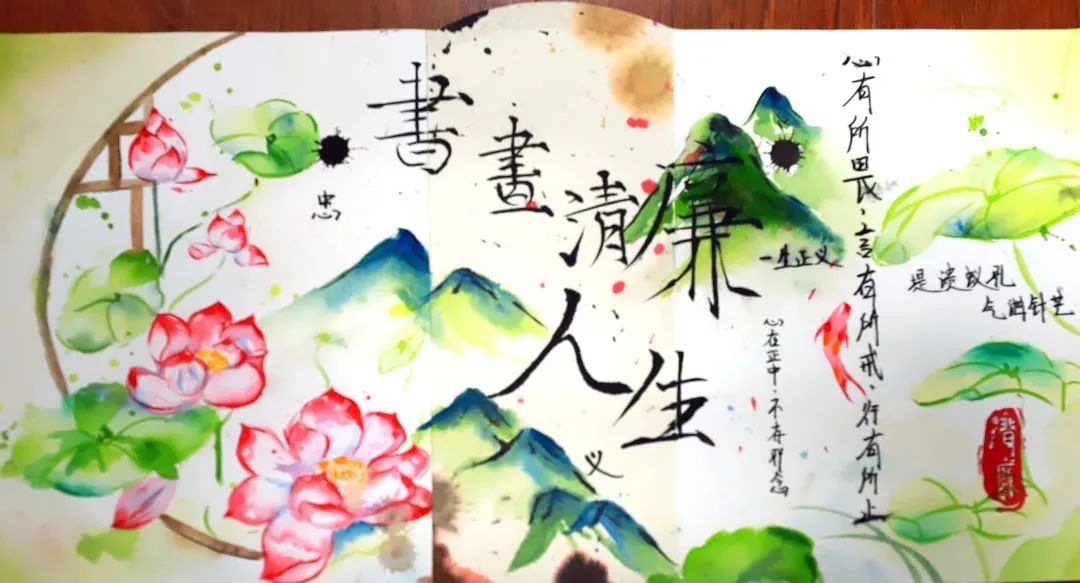 書畫清廉人生
忠
义
一生正义
心在正中、不存邪念
心有所畏、言有所戒、行有所止
堤溃蚁孔
气泄针芒
清廉